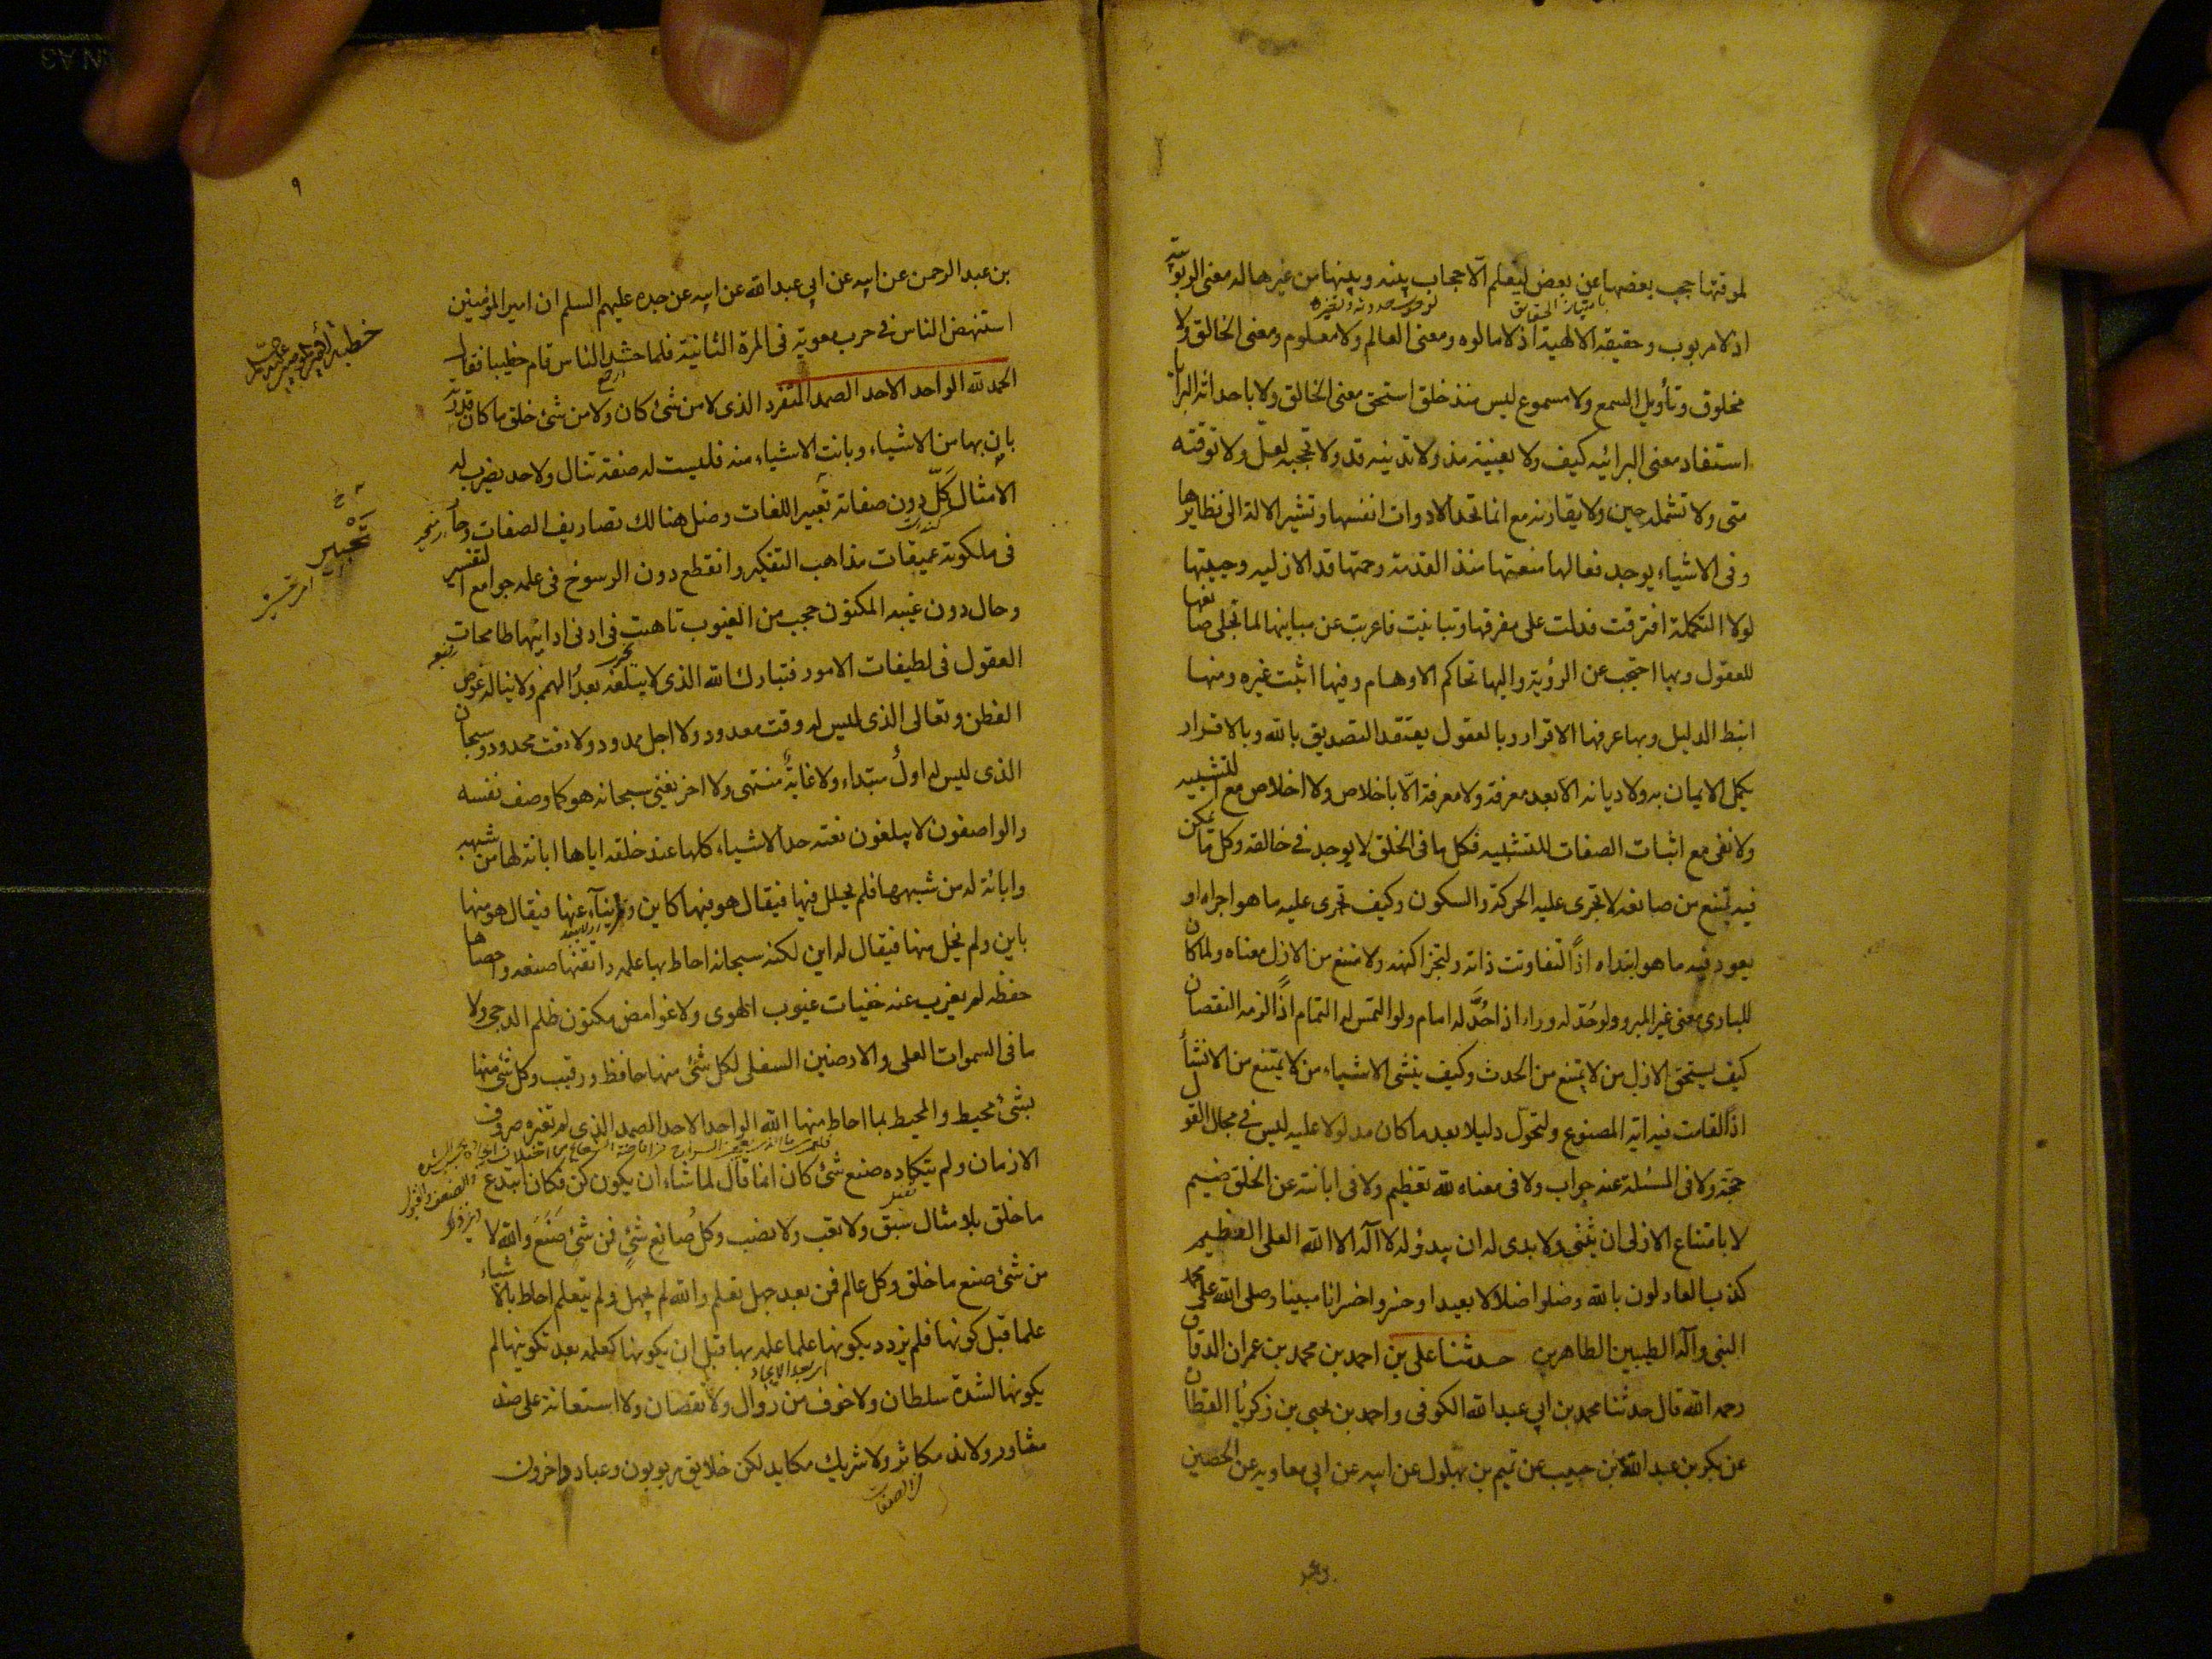 لموقتها حجب بعضها عن بعض ليعلم الا حجاب بينه وبينها من غيرها له معنى الربوبية
اذ لا مربوب وحقيقة الالهية اذ لا مالوه ومعنى العالم ولا معلوم ومعنى الخالق ولا
مخلوق وتأويل السمع ولا مسموع ليس منذ خلق استحق معنى الخالق ولا باحداثه البرايا
استفاد معنى البرائيه كيف ولا يغيبه مذ ولا تدنيه قد ولا تحجبه لعل ولا توقته
متى ولا تشمله حين ولا يقارنه مع انما تحد الادوات انفسها وتشير الالة الى نظايرها
وفى الاشياء يوجد فعالها منعتها منذ القدمة وحمتها قد الازليه وجنبتها
لولا التكملة افترقت فدلت على مفرقها وتباينت فاعربت عن مباينها لما تجلى صانعها
للعقول وبها احتجب عن الرؤية واليها تحاكم الاوهام وفيها اثبت غيره ومنها
انبط الدليل وبها عرفها الاقرار وبالعقول يعتقد التصديق بالله وبالاقرار
يكمل الايمان به ولا ديانه الا بعد معرفة ولا معرفة الا باخلاص ولا اخلاص مع التشبيه
ولا نفى مع اثبات الصفات للتشبيه فكل ما فى الخلق لا يوجد في خالقه وكل ما يمكن
فيه يمتنع من صانعه لا تجرى عليه الحركة والسكون وكيف تجرى عليه ما هو اجراه او
يعود فيه ما هو ابتداه اذًا لتفاوتت ذاته ولتجزا كنهه ولامتنع من الازل معناه ولما كان
للبارى معنى غير المبرو ولو حُدّ له وراء اذا حُدَّ له امام ولو التمس له التمام اذًا لزمه النقصان
كيف يستحق الازل من لا يمتنع من الحدث وكيف ينشى الاشياء من لا يمتنع من الانشأ
اذًا لقامت فيه اية المصنوع ولتحول دليلا بعد ما كان مدلولا عليه ليس في محال القول
حجة ولا فى المسئلة عنه جواب ولا فى معناه لله تعظيم ولا فى ابانته عن الخلق ضيم
لا بامتناع الازلى ان يثنى ولا بدى له ان يبدؤ له لا اله الا الله العلى العظيم
كذب العادلون بالله وضلوا ضلالا بعيدا وخسروا خسرانا مبينا وصلى الله على محمد
النبى وآله الطيبين الطاهرين حدثنا على بن احمد بن محمد بن عمران الدقاق
رحمه الله قال حدثنا محمد بن ابى عبد الله الكوفى واحمد بن يحيى بن زكريا القطان
عن بكر بن عبد الله بن حبيب عن تميم بن بهلول عن ابيه عن ابى معاويه عن الحصين
بن عبد
٩
بن عبد الرحمن عن ابيه عن ابى عبد الله عن ابيه عن جده عليهم السلم ان امير المؤمنين
استنهض الناس فى حرب معوية فى المرة الثانية فلما حشد الناس قام خطيبا فقال
الحمد لله الواحد الاحد الصمد المتفرد الذى لا من شئ كان ولا من شئ خلق ما كان قدرته
بان بها من الاشياء وبانت الاشياء منه فليست له صفة تنال ولا حد يضرب له
الامثال كَلّ دون صفاته تعبير اللغات وضل هنالك تصاريف الصفات وحار
فى ملكوته عميقات مذاهب التفكير وانقطع دون الرسوخ فى علمه جوامع التفسير
وحال دون غيبه المكنون حجب من الغيوب تاهت فى ادنى ادانيها طامحات
العقول فى لطيفات الامور فتبارك الله الذى لا يبلغه بعد الهمم ولا يناله غوص
الفطن وتعالى الذى ليس له وقت معدود ولا اجل ممدود ولا نعت محدود وسبحان
الذى ليس له اولٌ مبتداء ولا غايةٌ منتهى ولا اخر يفنى سبحانه هو كما وصف نفسه
والواصفون لا يبلغون نعته حد الاشياء كلها عند خلقه اياها ابانة لها من شبهه
وابانة له من شبهها فلم يحلل فيها فيقال هو فيها كاين ولم ينأ عنها فيقال هو منها
باين ولم يخل منها فيقال له اين لكنه سبحانه احاط بها علمه واتقنها صنعه واحصاها
حفظه لم يعزب عنه خفيات غيوب الهوى ولا غوامض مكنون ظلم الدجى ولا
ما فى السموات العلى والارضين السفلى لكل شئ منها حافظ ورقيب وكل شئ منها
بشئ محيط والمحيط بما احاط منها الله الواحد الاحد الصمد الذى لم تغيره صروف
الازمان ولم يتكاده صنع شئ كان انما قال لما شاء ان يكون كن فكان ابتدع
ما خلق بلا مثال سبق ولا تعب ولا نصب وكل صانع شئٍ فمن شئ صَنَعَ والله لا
من شئ صنع ما خلق وكل عالم فمن بعد جهل تعلم والله لم يجهل ولم يتعلم احاط بالاشياء
علما قبل كونها فلم يزدد بكونها علما علمه بها قبل ان يكونها كعلمه بعد تكوينها لم
يكونها لشدة سلطان ولا خوف من زوال ولا نقصان ولا استعانة على ضد
مثاور ولا ند مكاثر ولا شريك مكايد لكن خلايق مربوبون وعباد داخرون
تَحْبِير